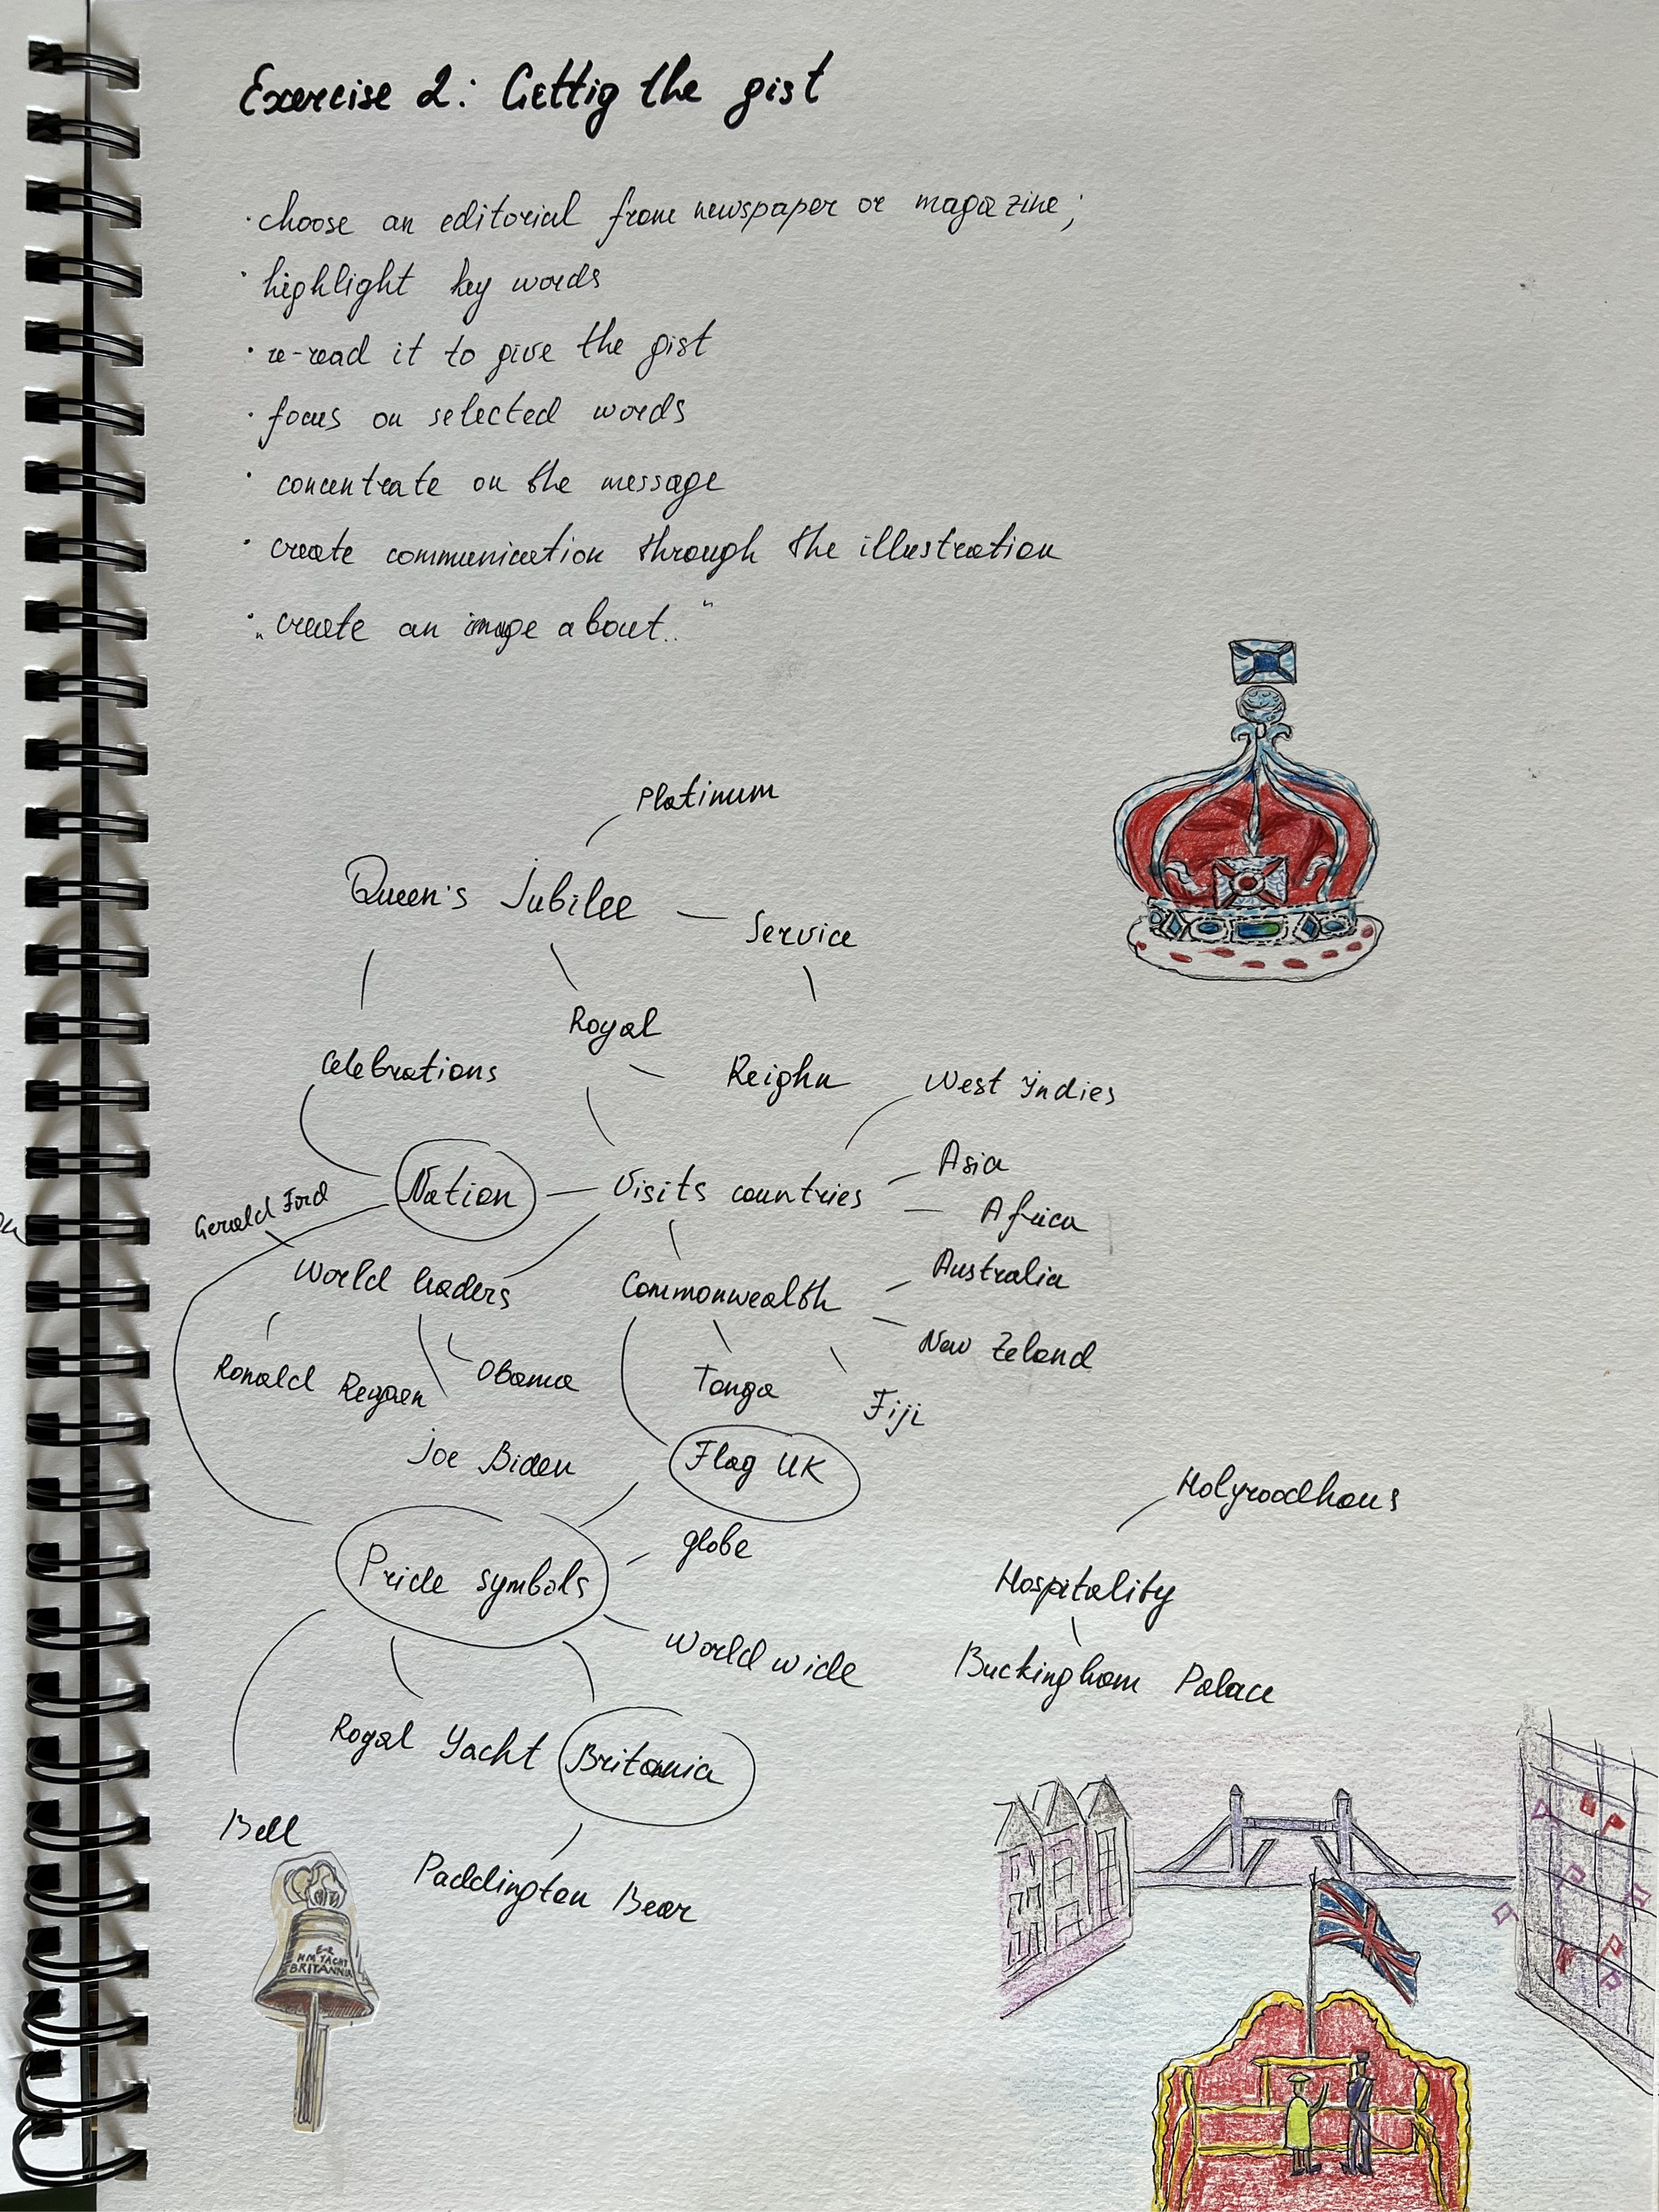 Exercise 2: Gettig the gist
· choose an editorial from newspaper or magazine;
· highlight key words
· re-read it to give the gist
· focus on selected words
· concentrate on the message
· create communication through the illustration
· „create an image about.."
Platinum
Queen's Jubilee
Service
Royal
Celebrations
Reighn
West Indies
Nation
Visits countries
Asia
Africa
Gerald Ford
World leaders
Commonwealth
Australia
New Zeland
Ronald Regaen
Obama
Tonga
Fiji
Joe Biden
Flag UK
Holyroodhous
globe
Pride symbols
Hospitality
World wide
Buckingham Palace
Royal Yacht Britannia
Bell
Paddington Bear
E R
HM YACHT
BRITANNIA